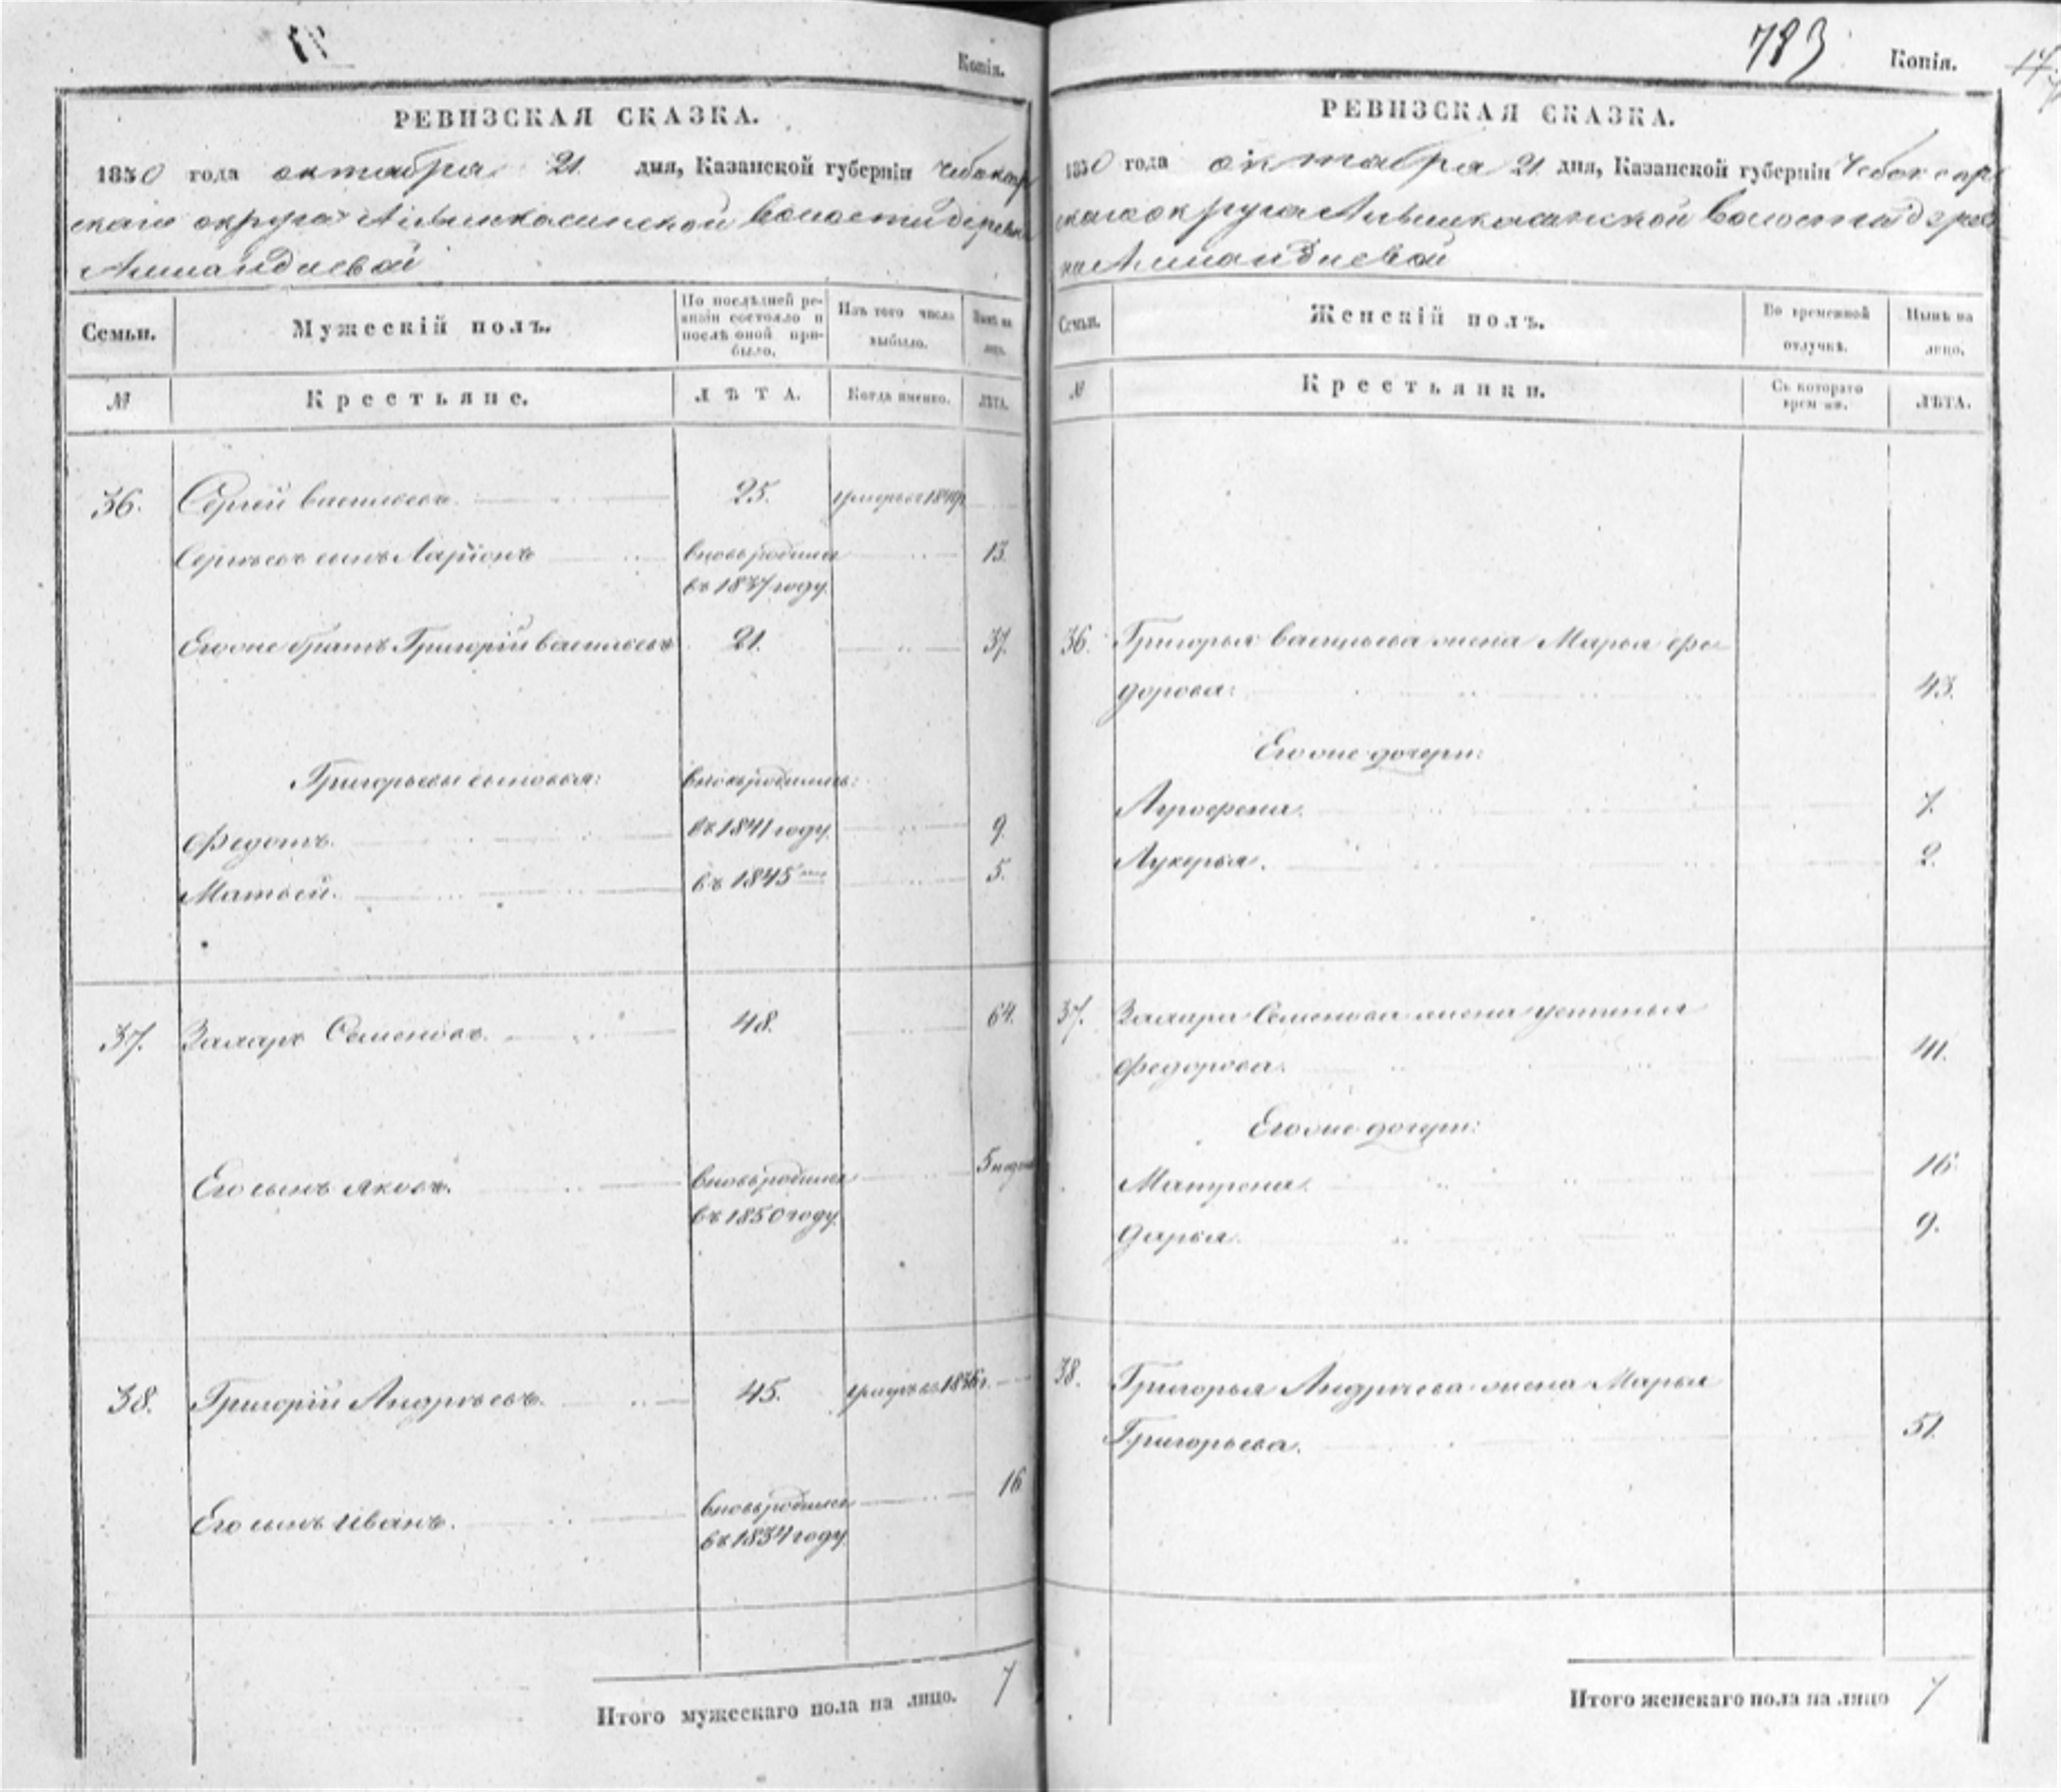 Копія.
РЕВИЗСКАЯ СКАЗКА.
1850 года октября 21 дня, Казанской губерніи Чебоксар
скаго округа Альшкасинской волости деревни
Семьи.
Мужескій полъ.
По послѣдней ре-
визіи состояло и
послѣ оной при-
было.
Изъ того числа
выбыло.
Нынѣ на
лицо.
№
Крестьяне.
ЛѢТА.
Когда именно.
ЛѢТА.
36.
Сергей Васильевъ.
25.
умеръ въ
Сергѣевъ сынъ Ларіонъ
вновь родился
13.
въ 1837 году.
Его же братъ Григорій Васильевъ
21.
37.
Григорьевы сыновья:
вновь родились:
Федотъ.
въ 1841 году.
9.
Матвей.
въ 1845
5.
37.
Захаръ Семеновъ.
48.
64.
Его сынъ Яковъ.
вновь родился
въ 1850 году.
38.
Григорій Андрѣевъ.
45.
умеръ въ 1836 г.
Его сынъ Иванъ.
вновь родился
16
въ 1834 году.
Итого мужескаго пола на лицо.
7
783
Копія.
17
РЕВИЗСКАЯ СКАЗКА.
1850 года октября 21 дня, Казанской губерніи Чебоксар
скаго округа Альшкасинской волости дерев
Семьи.
Женскій полъ.
Во временной
отлучкѣ.
Нынѣ на
лицо.
№
Крестьянки.
Съ котораго
времени.
ЛѢТА.
36.
Григорья Васильева жена Марья Фе
дорова:
43.
Его же дочери:
Агрофена.
7.
Лукерья.
2.
37.
Захара Семенова жена Устинья
Федорова.
41.
Его же дочери:
Матрена.
16
Дарья.
9.
38.
Григорья Андреева жена Марья
Григорьева.
51.
Итого женскаго пола на лицо
7